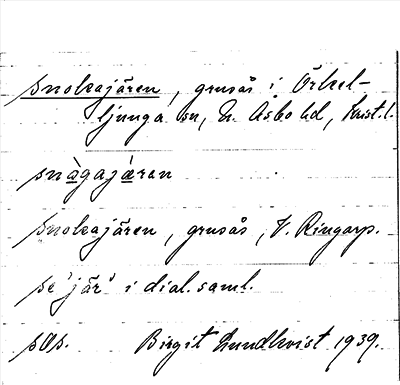 Snokajären, grusås i Örkel-
ljunga sn, N. Åsbo hd, Krist. l.
snàgajæren
Snokajären, grusås, V. Ringarp.
se 'jär' i dial. saml.
sOs. Birgit Lundkvist 1939.